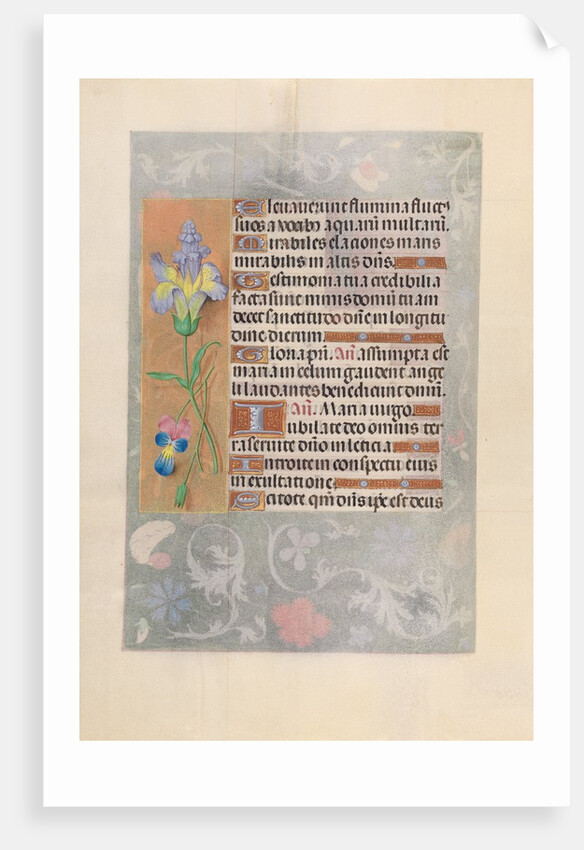 Elevaverunt flumina fluct9
suos a vocib9 aquarū multarū.
Mirabiles elaciones maris
mirabilis in altis dn̄s.
Testimonia tua credibilia
facta sunt nimis domū tuam
decet sanctitudo dn̄e in longitu
dine dierum
Gloria pr̄i. An̄. assumpta est
maria in celum gaudent ange
li laudantes benedicunt dn̄m.
An̄. Maria virgo
Iubilate deo omnis ter
ra servite dn̄o in leticia
Introite in conspectu eius
in exultatione
Scitote qm̄ dn̄s ip̄e est deus